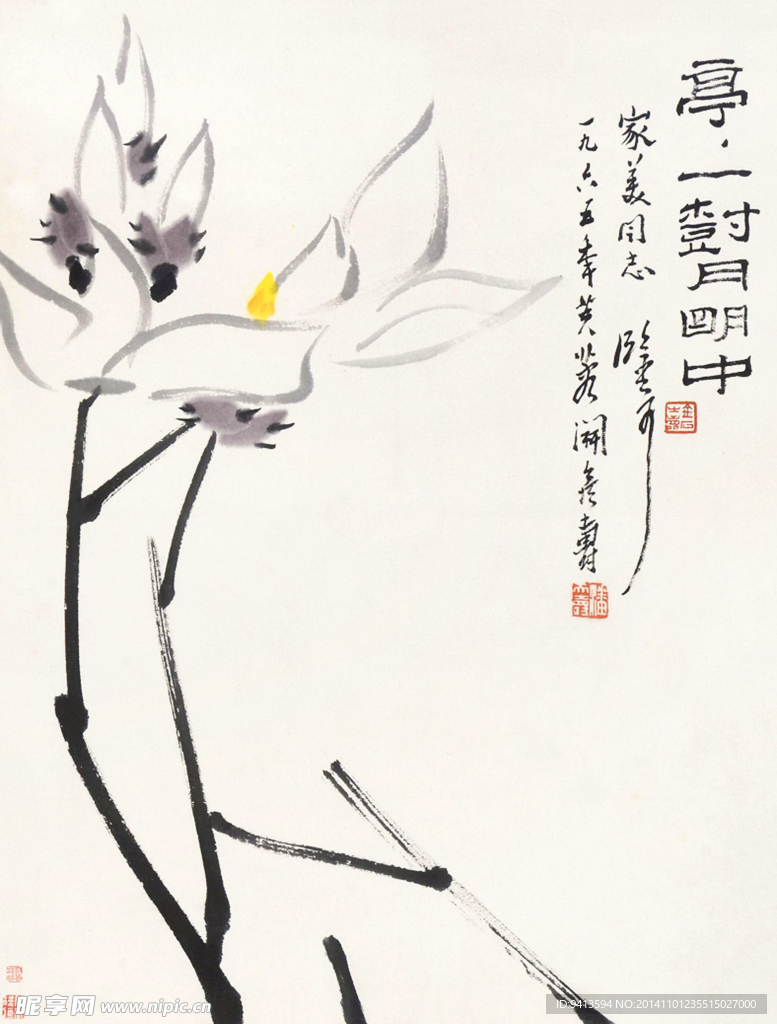 亭〻一對月明中
家美同志 鑒可
一九六五年芙蓉開矣壽
昵享网 www.nipic.cn
ID:9413594 NO:20141101235515027000